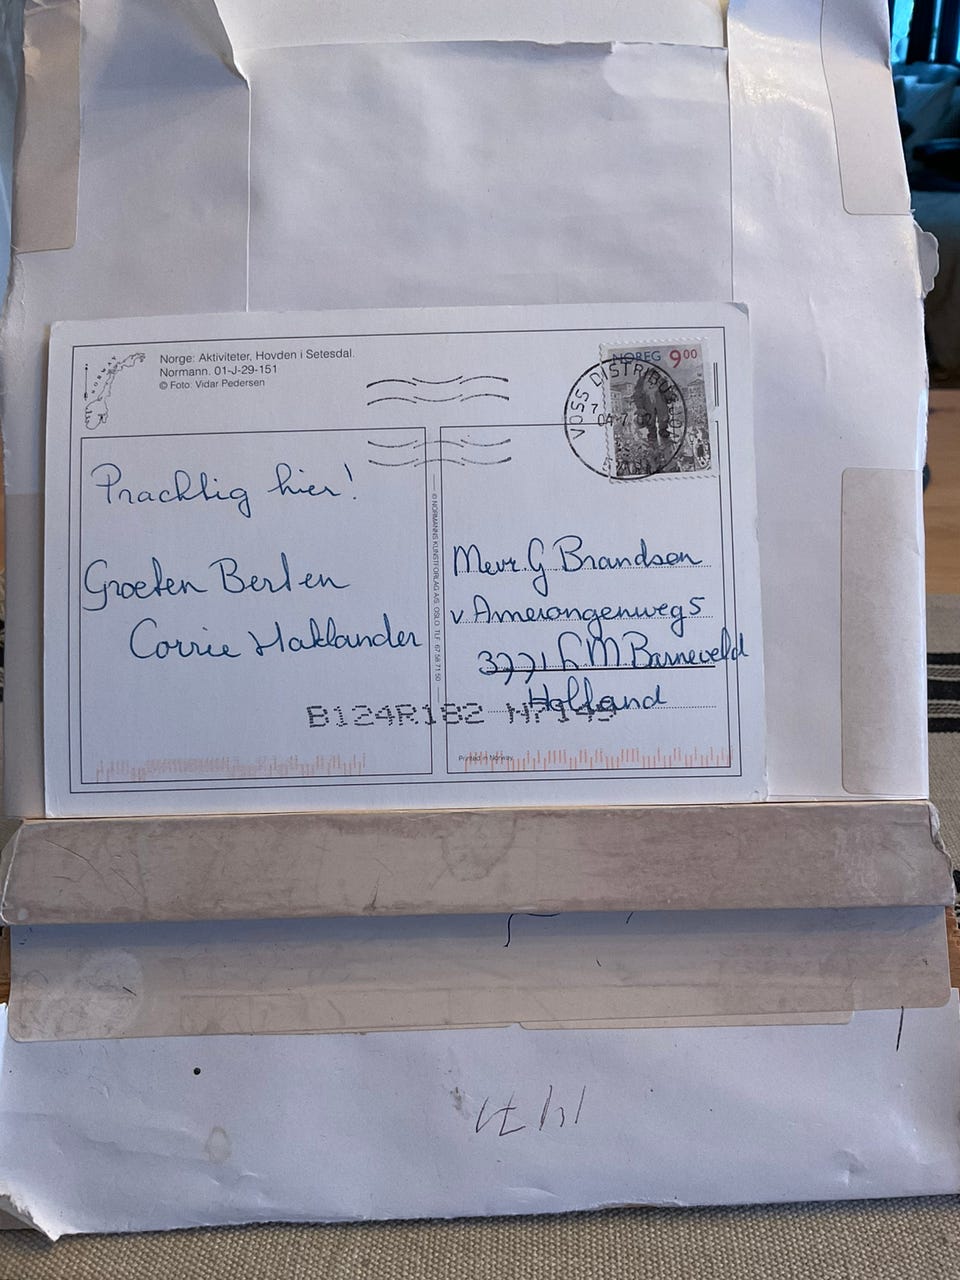 NORWAY
Norge: Aktiviteter, Hovden i Setesdal.
Normann. 01-J-29-151
© Foto: Vidar Pedersen
NOREG 900
VOSS DISTRIBUSJON
Prachtig hier!
Groeten Bert en
Corrie Haklander
© NORMANNS KUNSTFORLAG A/S, OSLO. TLF. 67 58 71 50
Mevr. G Brandsen
v Amerongenweg 5
3771 Barneveld
Holland
B124R182 N7149
Printed in Norway